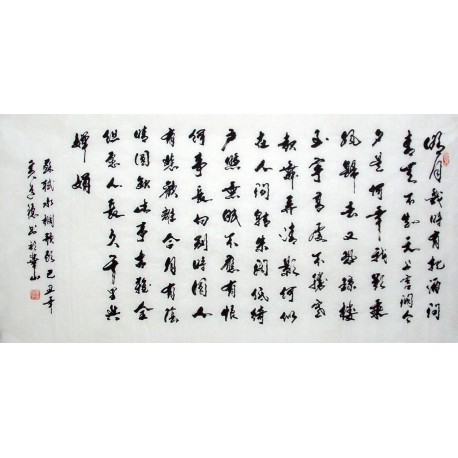 明月幾時有把酒問
青天不知天上宫闕今
夕是何年我欲乘
風歸去又恐瓊樓
玉宇高處不勝寒
起舞弄清影何似
在人間轉朱閣低綺
户照無眠不應有恨
何事長向别時圓人
有悲歡離合月有陰
晴圓缺此事古難全
但願人長久千里共
嬋娟
蘇軾水調歌頭己丑年
书於